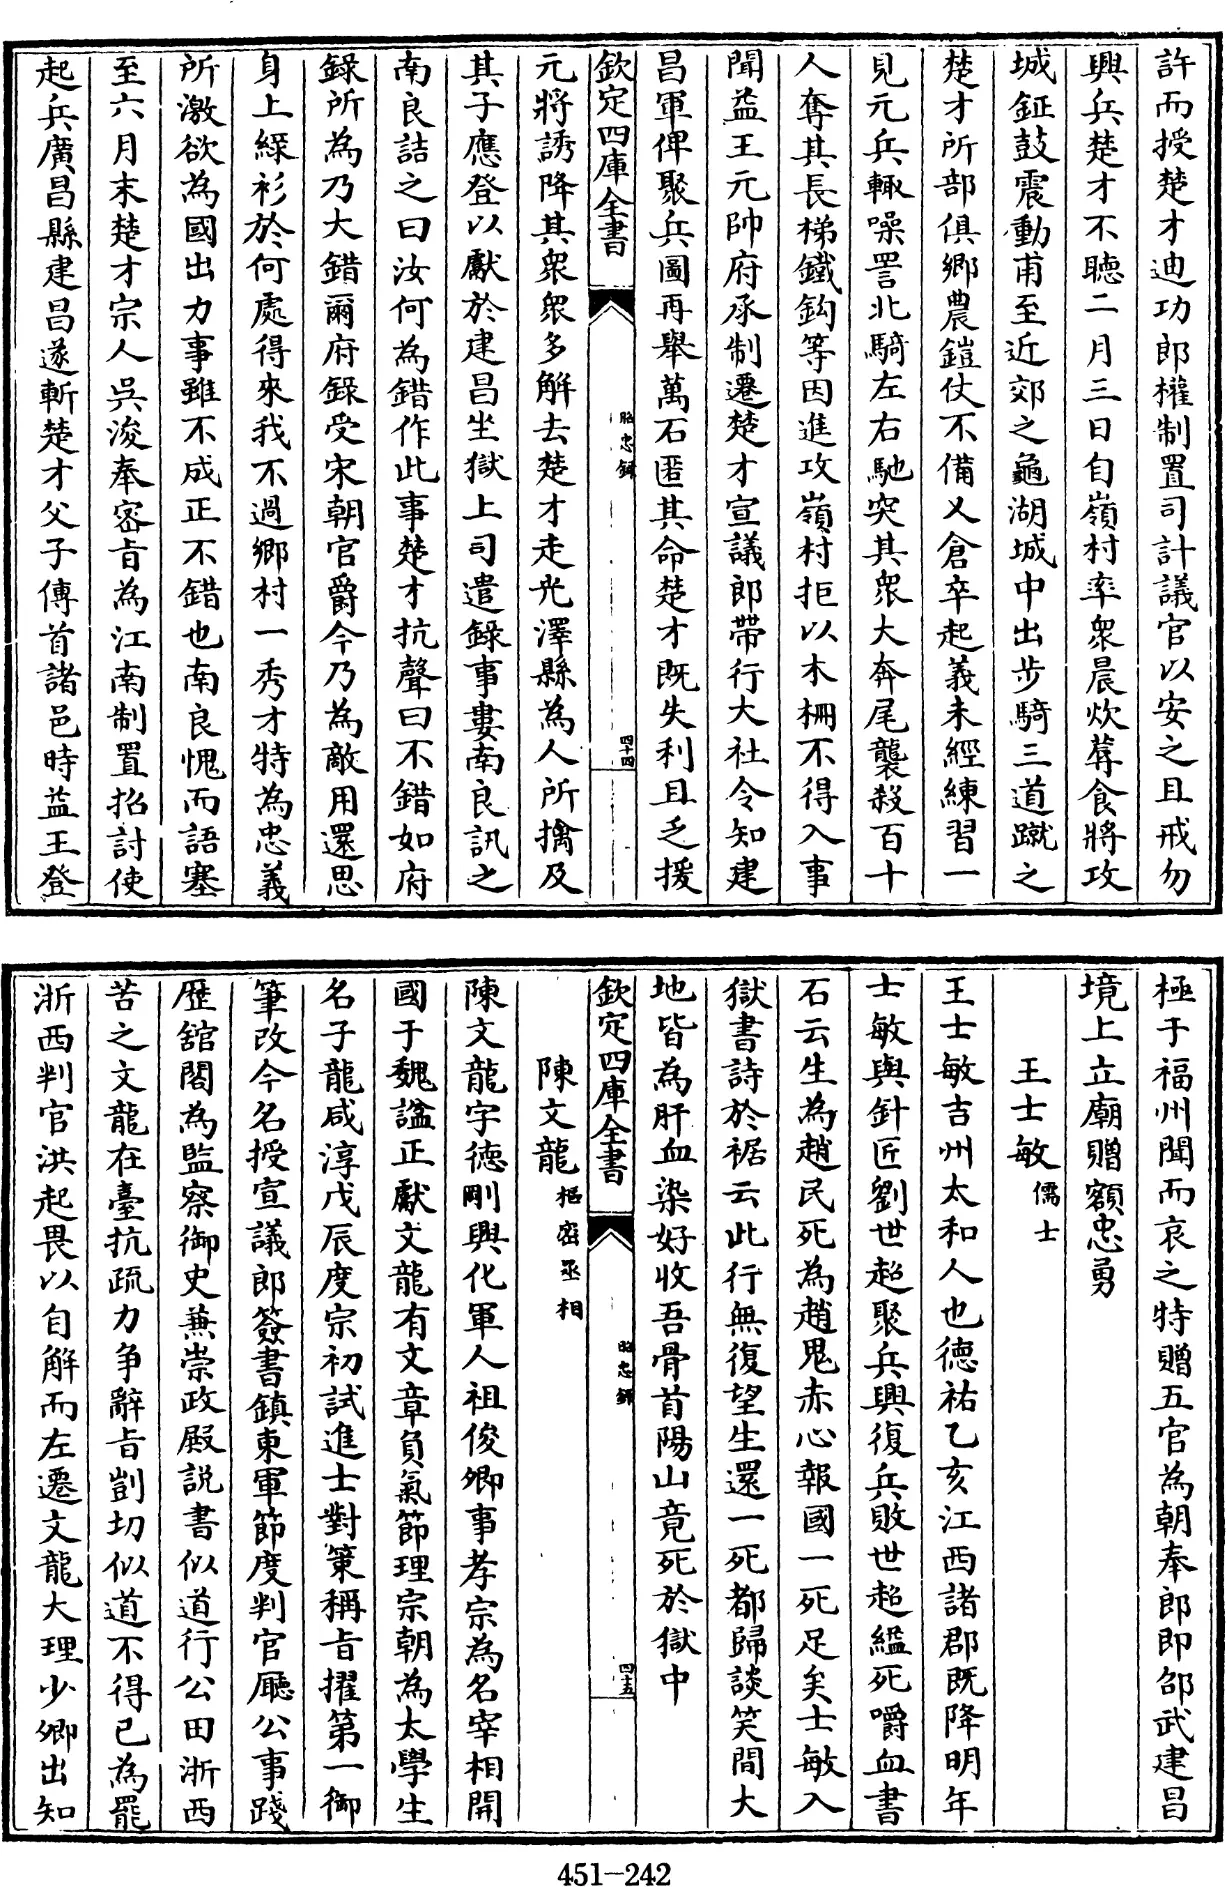 許而授楚才迪功郎權制置司計議官以安之且戒勿
興兵楚才不聽二月三日自嶺村率衆晨炊蓐食將攻
城鉦鼓震動甫至近郊之龜湖城中出步騎三道蹴之
楚才所部俱鄉農鎧仗不備又倉卒起義未經練習一
見元兵輒噪詈北騎左右馳突其衆大奔尾襲殺百十
人奪其長梯鐵鈎等因進攻嶺村拒以木柵不得入事
聞益王元帥府承制遷楚才宣議郎帶行大社令知建
昌軍俾聚兵圖再舉萬石匿其命楚才既失利且乏援
欽定四庫全書
昭忠錄
四十四
元將誘降其衆衆多解去楚才走光澤縣為人所擒及
其子應登以獻於建昌坐獄上司遣錄事婁南良訊之
南良詰之曰汝何為錯作此事楚才抗聲曰不錯如府
錄所為乃大錯爾府錄受宋朝官爵今乃為敵用還思
身上綠衫於何處得來我不過鄉村一秀才特為忠義
所激欲為國出力事雖不成正不錯也南良愧而語塞
至六月末楚才宗人吳浚奉密旨為江南制置招討使
起兵廣昌縣建昌遂斬楚才父子傳首諸邑時益王登
極于福州聞而哀之特贈五官為朝奉郎即邵武建昌
境上立廟贈額忠勇
王士敏儒士
王士敏吉州太和人也德祐乙亥江西諸郡既降明年
士敏與針匠劉世超聚兵興復兵敗世超縊死嚼血書
石云生為趙民死為趙鬼赤心報國一死足矣士敏入
獄書詩於裾云此行無復望生還一死都歸談笑間大
地皆為肝血染好收吾骨首陽山竟死於獄中
欽定四庫全書
昭忠錄
四十五
陳文龍樞密丞相
陳文龍字德剛興化軍人祖俊卿事孝宗為名宰相開
國于魏諡正獻文龍有文章負氣節理宗朝為太學生
名子龍咸淳戊辰度宗初試進士對策稱旨擢第一御
筆改今名授宣議郎簽書鎮東軍節度判官廳公事踐
歷舘閣為監察御史兼崇政殿説書似道行公田浙西
苦之文龍在臺抗疏力争辭旨剴切似道不得已為罷
浙西判官洪起畏以自解而左遷文龍大理少卿出知
451-242